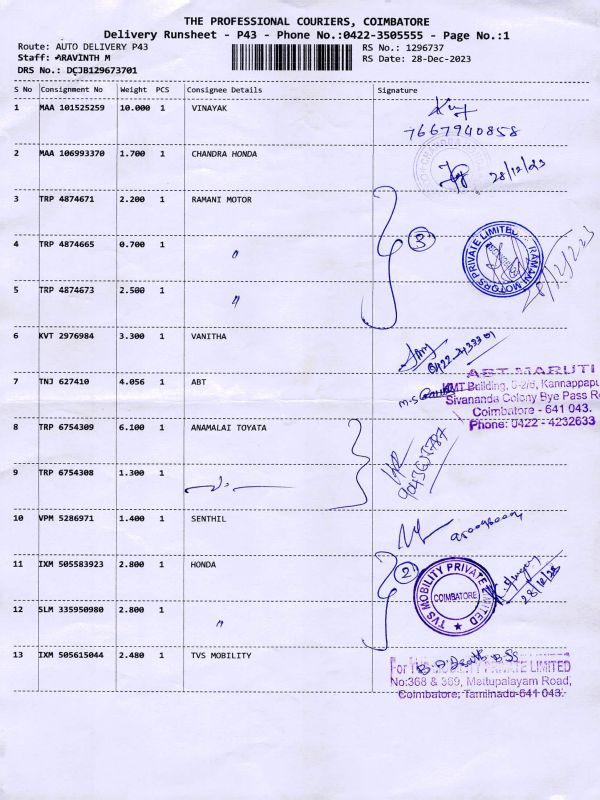 THE PROFESSIONAL COURIERS, COIMBATORE
Delivery Runsheet - P43 - Phone No.:0422-3505555 - Page No.:1
Route: AUTO DELIVERY P43
RS No.: 1296737
Staff: ARAVINTH M
RS Date: 28-Dec-2023
DRS No.: DCJB129673701
S No Consignment No Weight PCS Consignee Details Signature
1 MAA 101525259 10.000 1 VINAYAK
7667940858
2 MAA 106993370 1.700 1 CHANDRA HONDA
28/12/23
3 TRP 4874671 2.200 1 RAMANI MOTOR
3
RAMANI MOTORS PRIVATE LIMITED
4 TRP 4874665 0.700 1 "
5 TRP 4874673 2.500 1 "
6 KVT 2976984 3.300 1 VANITHA
7 TNJ 627410 4.056 1 ABT
ABT MARUTI
Sivananda Colony Bye Pass
Coimbatore - 641 043.
Phone: 0422 - 4232633
8 TRP 6754309 6.100 1 ANAMALAI TOYATA
9 TRP 6754308 1.300 1
10 VPM 5286971 1.400 1 SENTHIL
11 IXM 505583923 2.800 1 HONDA
2
TVS MOBILITY PRIVATE LIMITED
COIMBATORE
28/12/23
12 SLM 335950980 2.800 1 "
13 IXM 505615044 2.480 1 TVS MOBILITY
For TVS MOBILITY PRIVATE LIMITED
No:368 & 369, Mettupalayam Road,
Coimbatore, Tamilnadu-641 043.